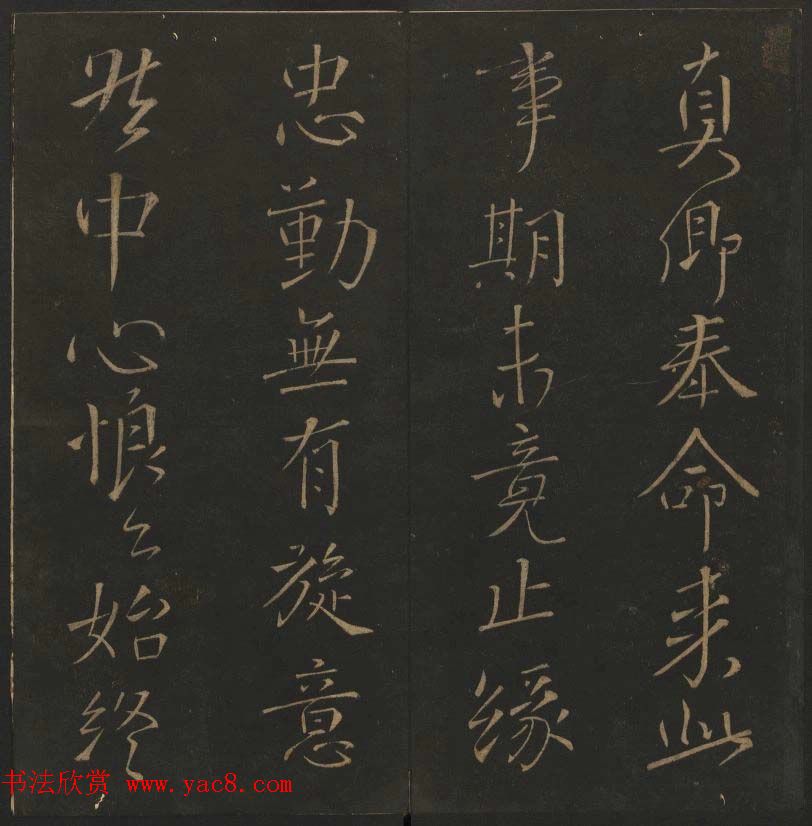 真卿奉命来此
事期未竟止缘
忠勤無有旋意
然中心恨恨始终
书法欣赏 www.yac8.com